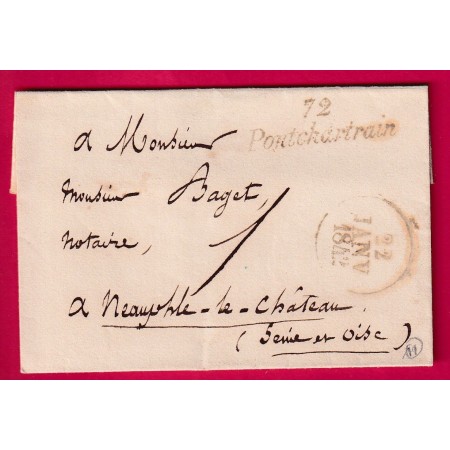 72
Pontchartrain
a Monsieur
Monsieur Baget,
notaire,
1
a Neauphle-le-Château
(Seine et Oise)
22
JANV